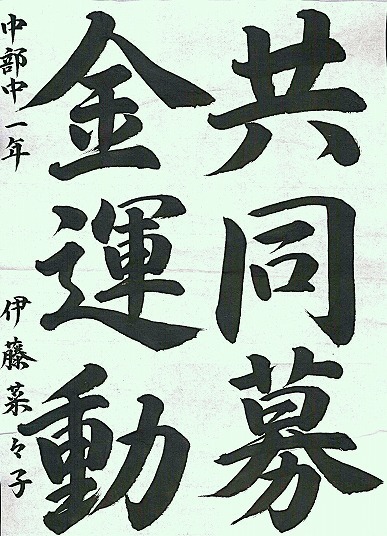 共同募
金運動
中部中一年 伊藤菜々子